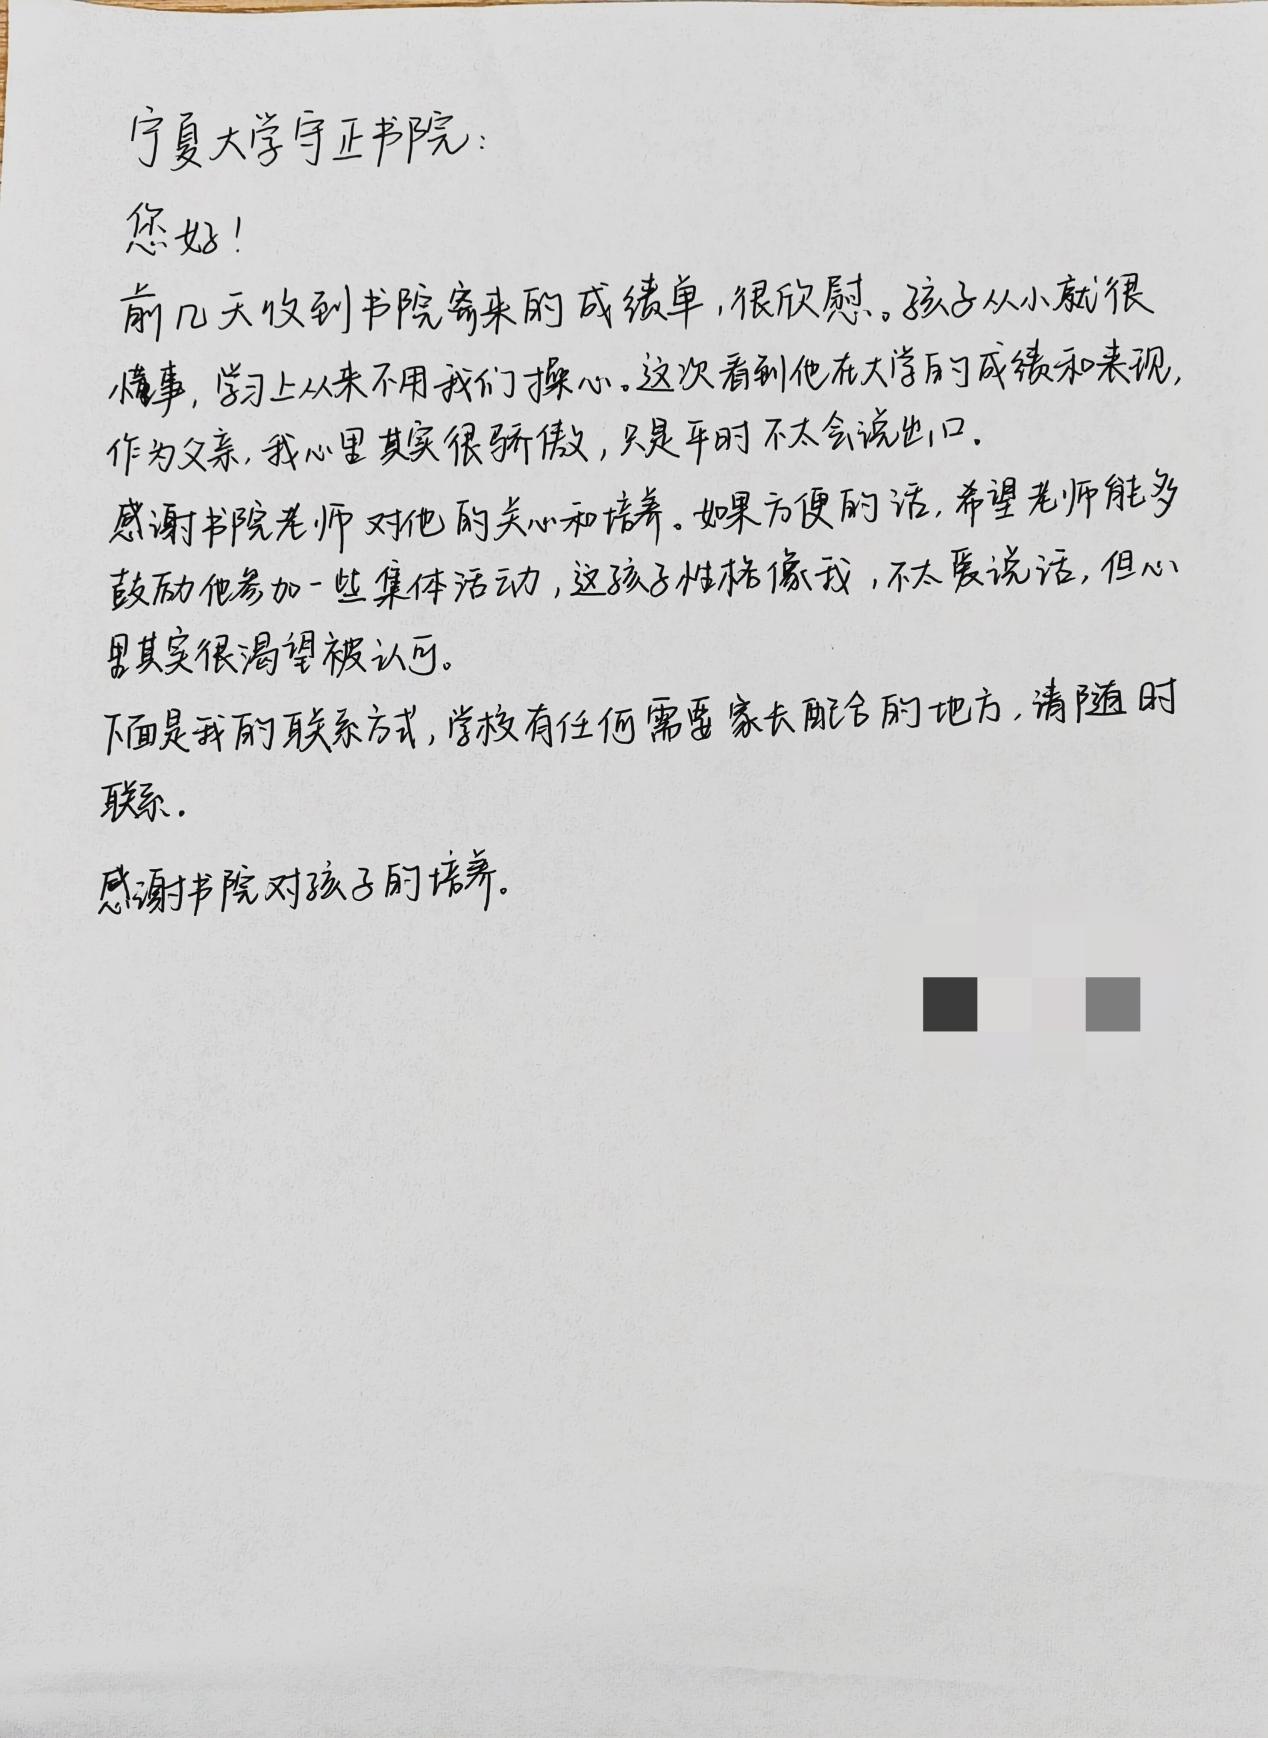 宁夏大学守正书院：
您好！
前几天收到书院寄来的成绩单，很欣慰。孩子从小就很
懂事，学习上从来不用我们操心。这次看到他在大学的成绩和表现，
作为父亲，我心里其实很骄傲，只是平时不太会说出口.
感谢书院老师对他的关心和培养。如果方便的话，希望老师能多
鼓励他参加一些集体活动，这孩子性格像我，不太爱说话，但心
里其实很渴望被认可。
下面是我的联系方式，学校有任何需要家长配合的地方，请随时
联系.
感谢书院对孩子的培养。